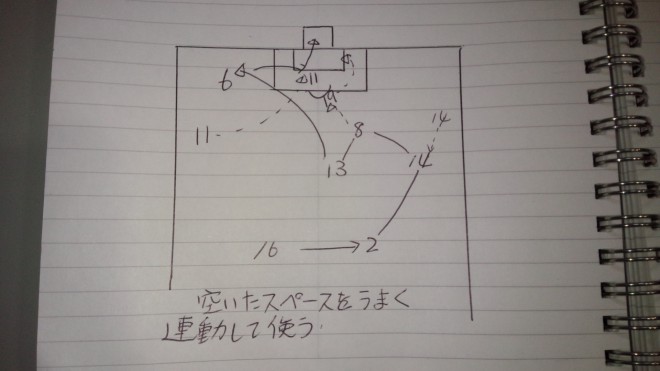 11
6
9
14
11
8
14
13
16 2
空いたスペースをうまく
連動して使う.